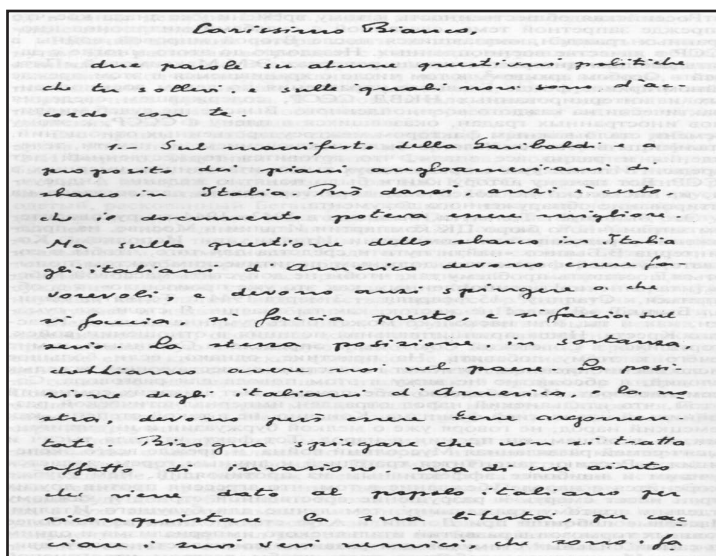 Carissimo Bianco,
due parole su alcune questioni politiche
che tu sollevi e sulle quali non sono d'ac-
cordo con te.
1.- Sul manifesto della Garibaldi e a
proposito dei piani angloamericani di
sbarco in Italia. Può darsi, anzi è certo,
che io documento poteva essere migliore.
Ma sulla questione dello sbarco in Italia
gli italiani d'America devono essere fa-
vorevoli, e devono anzi spingere a che
si faccia, si faccia presto, e si faccia sul
serio. La stessa posizione, in sostanza,
dobbiamo avere noi nel paese. La posi-
zione degli italiani d'America, e la no
stra, devono però essere bene argomen-
tate. Bisogna spiegare che non si tratta
affatto di invasione, ma di un aiuto
che viene dato al popolo italiano per
riconquistare la sua libertà, per cac
ciare i suoi veri nemici, che sono i fa